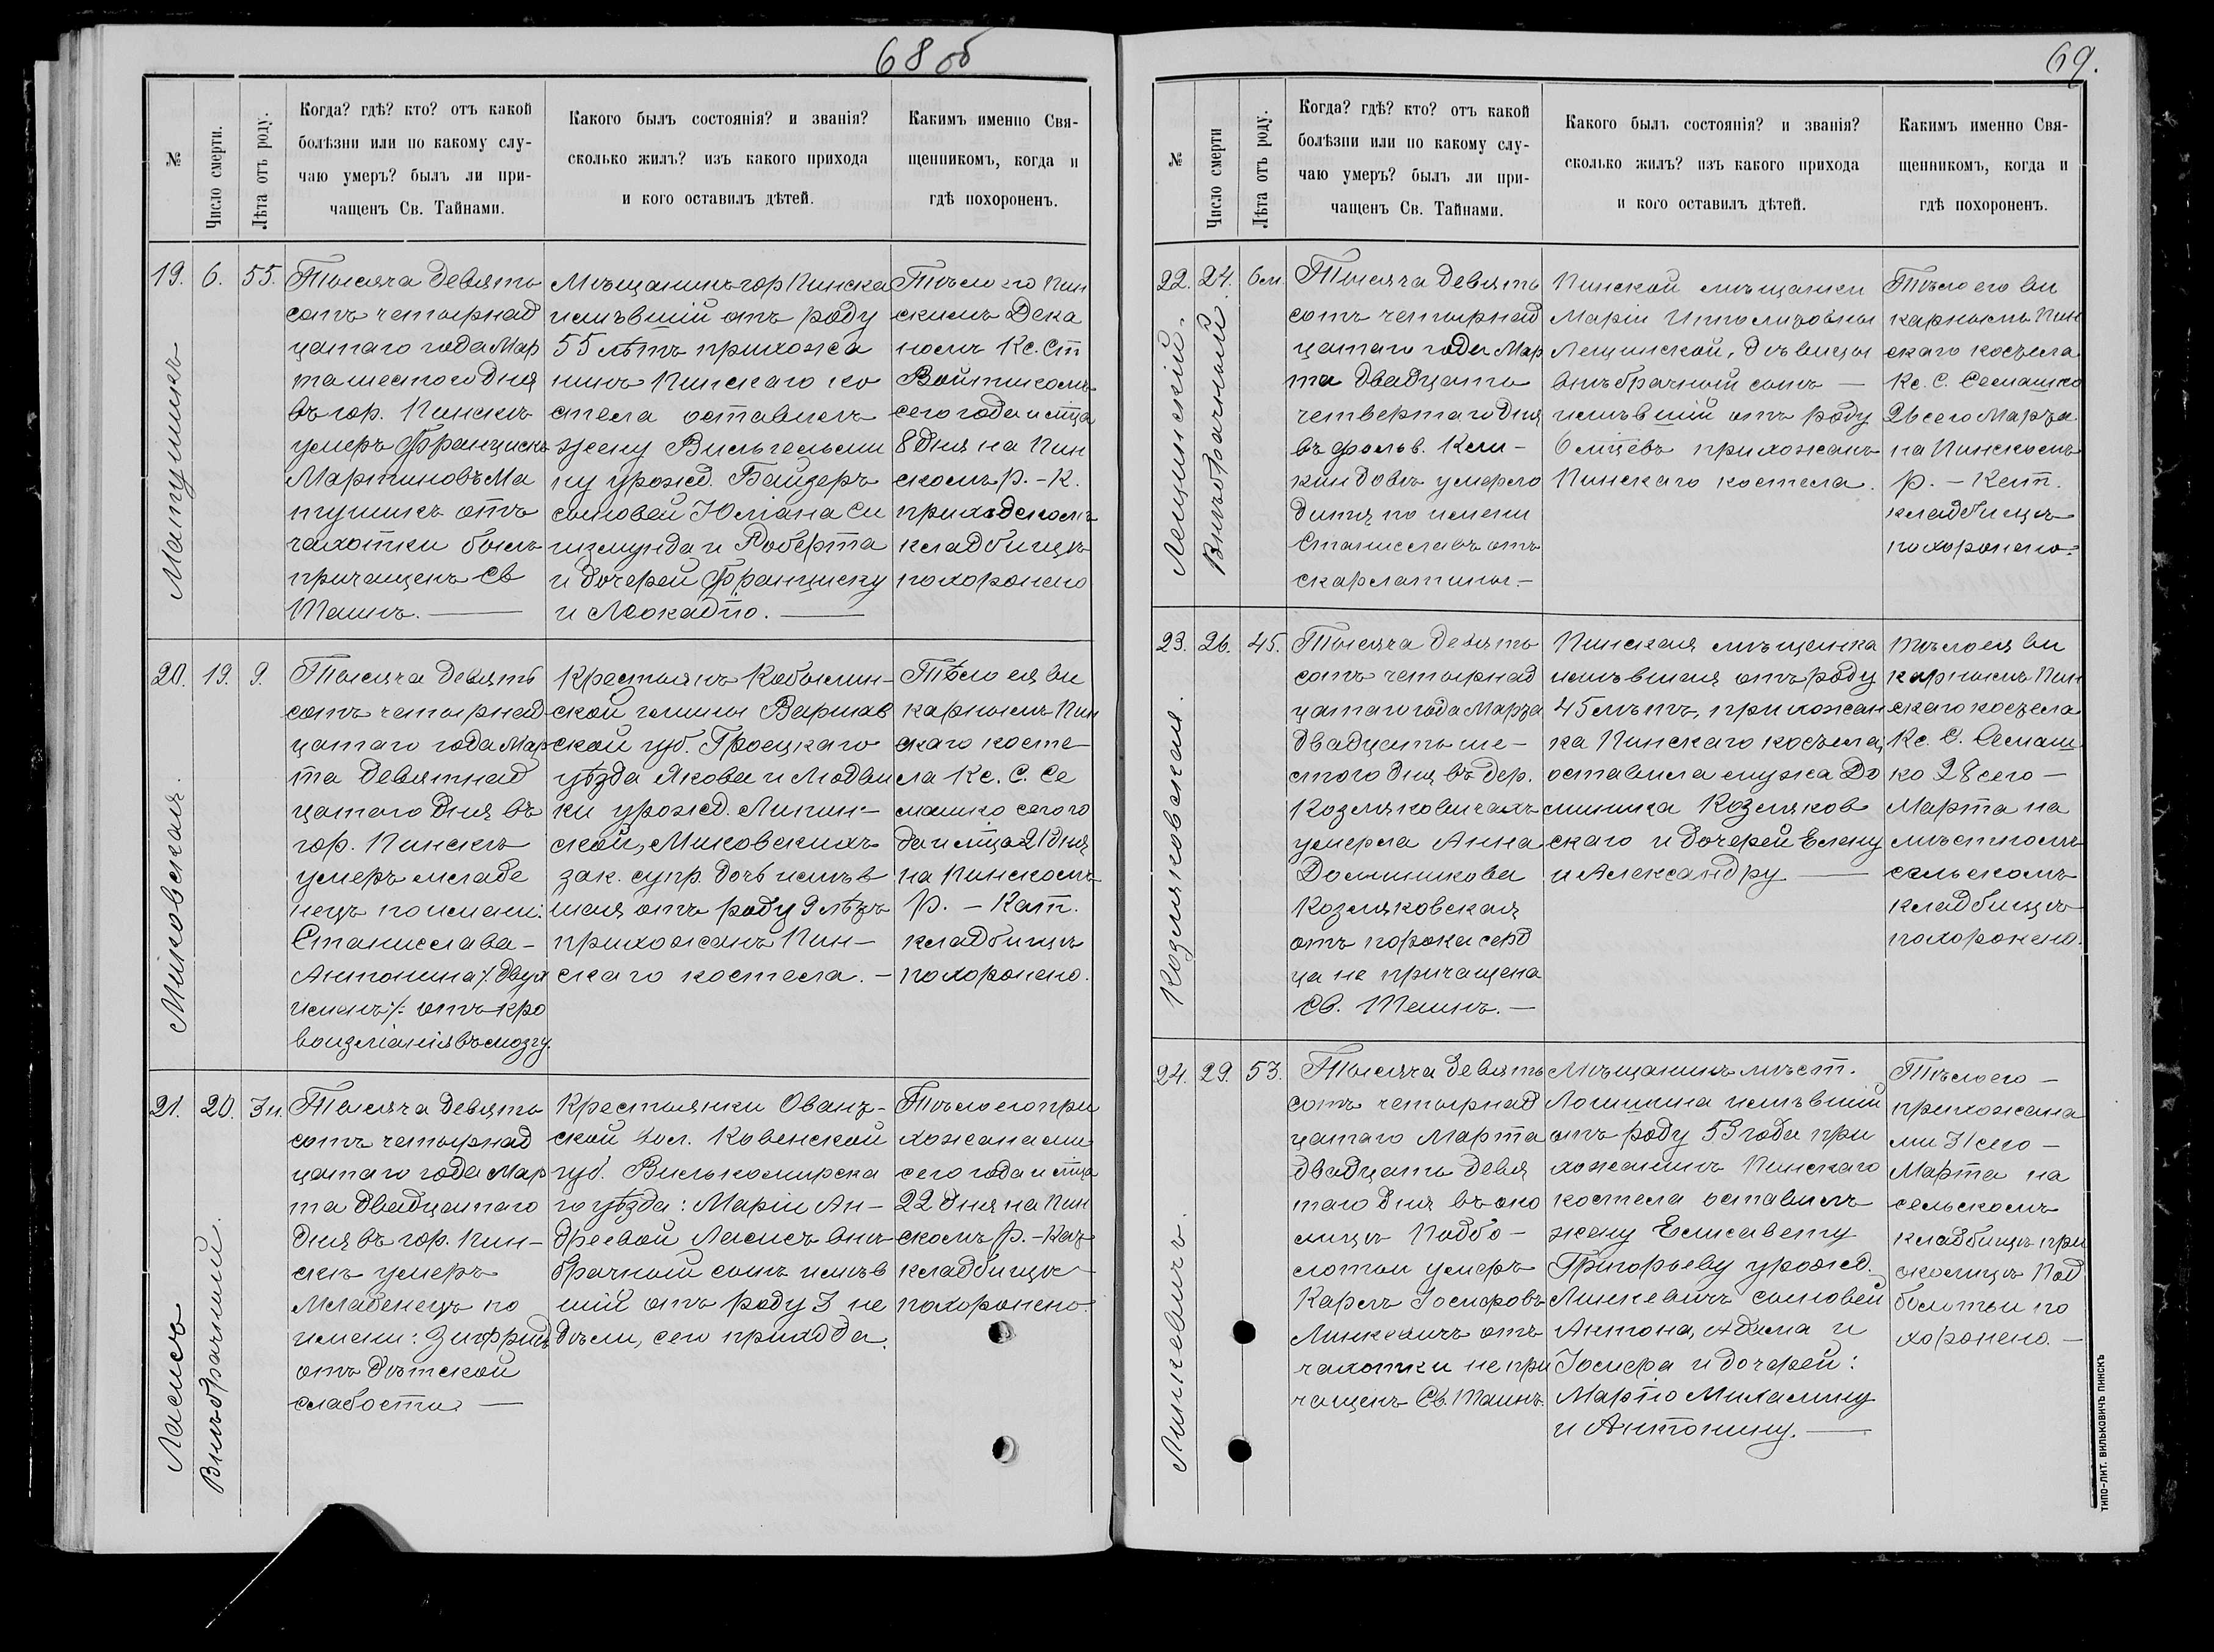 68 об
№
Число смерти.
Лѣта отъ роду.
Когда? гдѣ? кто? отъ какой
болѣзни или по какому слу-
чаю умеръ? былъ ли при-
чащенъ Св. Тайнами.
Какого былъ состоянія? и званія?
сколько жилъ? изъ какого прихода
и кого оставилъ дѣтей.
Какимъ именно Свя-
щенникомъ, когда и
гдѣ похороненъ.
19. 6. 55.
Матушикъ
Тысяча девять
сотъ четырнад
цатаго года Мар
та шестого дня
въ гор. Пинскѣ
умеръ Францискъ
Мартиновъ Ма
тушикъ отъ
чахотки былъ
причащенъ Св
Таинъ.
Мѣщанинъ гор Пинска
имѣвшій отъ роду
55 лѣтъ прихожа
нинъ Пинскаго ко
стела оставилъ
жену Вильгельми
ну урожд. Байдеръ
сыновей Юліана Си
гизмунда и Роберта
и дочерей Франциску
и Леокадію.
Тѣло его Пин
скимъ Дека
номъ Кс. Ст
Войтикомъ
сего года и мѣца
8 дня на Пин
скомъ Р.-К.
приходскомъ
кладбищѣ
похоронено
20. 19. 9.
Миковская.
Тысяча девять
сотъ четырнад
цатаго года Мар
та девятнад
цатаго дня въ
гор. Пинскѣ
умеръ младе
нецъ по имени:
Станислава-
Антонина /:двухъ
именъ:/ отъ кро
воизліянія въ мозгу.
Крестьянъ Кобылин-
ской гмины Варшав
ской губ. Гроецкаго
уѣзда Якова и Людви
ки урожд. Липин-
ской, Миковскихъ
зак. супр. дочь имѣв
шая отъ роду 9 лѣтъ
прихожанъ Пин-
скаго костела.-
Тѣло ея ви
карнымъ Пин
скаго косте
ла Кс. С. Се
машко сего го
да и мѣца 21 дня
на Пинскомъ
Р. - Кат.
кладбищѣ
похоронено.
21. 20. 3 н.
Ласисъ
Внѣбрачный.
Тысяча девять
сотъ четырнад
цатаго года Мар
та двадцатаго
дня въ гор. Пин-
скѣ умеръ
младенецъ по
имени: Зигфридъ
отъ дѣтской
слабости. —
Крестьянки Ованд-
ской вол. Ковенской
губ. Вилькомирска
го уѣзда: Маріи Ан-
дреевой Ласисъ внѣ
брачный сынъ имѣв
шій отъ роду 3 не
дѣли, сего прихода.
Тѣло его при
хожанами
сего года и мѣца
22 дня на Пин
скомъ Р.-Кат
кладбищѣ
похоронено.
69.
№
Число смерти
Лѣта отъ роду.
Когда? гдѣ? кто? отъ какой
болѣзни или по какому слу-
чаю умеръ? былъ ли при-
чащенъ Св. Тайнами.
Какого былъ состоянія? и званія?
сколько жилъ? изъ какого прихода
и кого оставилъ дѣтей.
Какимъ именно Свя-
щенникомъ, когда и
гдѣ похороненъ.
22. 24. 6 м.
Лещинскій.
Внѣбрачный.
Тысяча девять
сотъ четырнад
цатаго года Мар
та двадцать
четвертаго дня
въ фольв.
умерло
дитя по имени
Станиславъ отъ
скарлатины.-
Пинской мѣщанки
Маріи Ипполитовны
Лещинской, дѣвицы
внѣбрачный сынъ —
имѣвшій отъ роду
6 мѣцевъ прихожанъ
Пинскаго костела.
Тѣло его ви
карнымъ Пин
скаго костела
Кс. С. Семашко
26 сего Марта
на Пинскомъ
Р. - Кат.
кладбищѣ
похоронено.
23. 26. 45.
Козляковская.
Тысяча девять
сотъ четырнад
цатаго года Марта
двадцать ше-
стого дня въ дер.
Козляковичахъ
умерла Анна
Доминикова
Козляковская
отъ порока серд
ца не причащена
Св. Таинъ.-
Пинская мѣщанка
имѣвшая отъ роду
45 лѣтъ, прихожан
ка Пинскаго костела,
оставила мужа До
миника Козляков
скаго и дочерей Елену
и Александру
Тѣло ея ви
карнымъ Пин
скаго костела
Кс. С. Семаш
ко 28 сего —
Марта на
мѣстномъ
сельскомъ
кладбищѣ
похоронено.
24. 29. 53.
Линкевичъ.
Тысяча девять
сотъ четырнад
цатаго Марта
двадцать девя
таго дня въ око
лицѣ Подбо-
лотьи умеръ
Карлъ Іосифовъ
Линкевичъ отъ
чахотки не при
чащенъ Св. Таинъ.
Мѣщанинъ мѣст.
Логишина имѣвшій
отъ роду 53 года при
хожанинъ Пинскаго
костела оставилъ
жену Елисавету
Григорьеву урожд.
Линкевичъ сыновей
Антона, Адама и
Іосифа и дочерей:
Марію Михалину
и Антонину.
Тѣло его —
прихожана
ми 31 сего —
Марта на
сельскомъ
кладбищѣ при
околицѣ Под
болотьи по
хоронено. —
ТИПО-ЛИТ. ВИЛЬКОВИЧЪ ПИНСКЪ